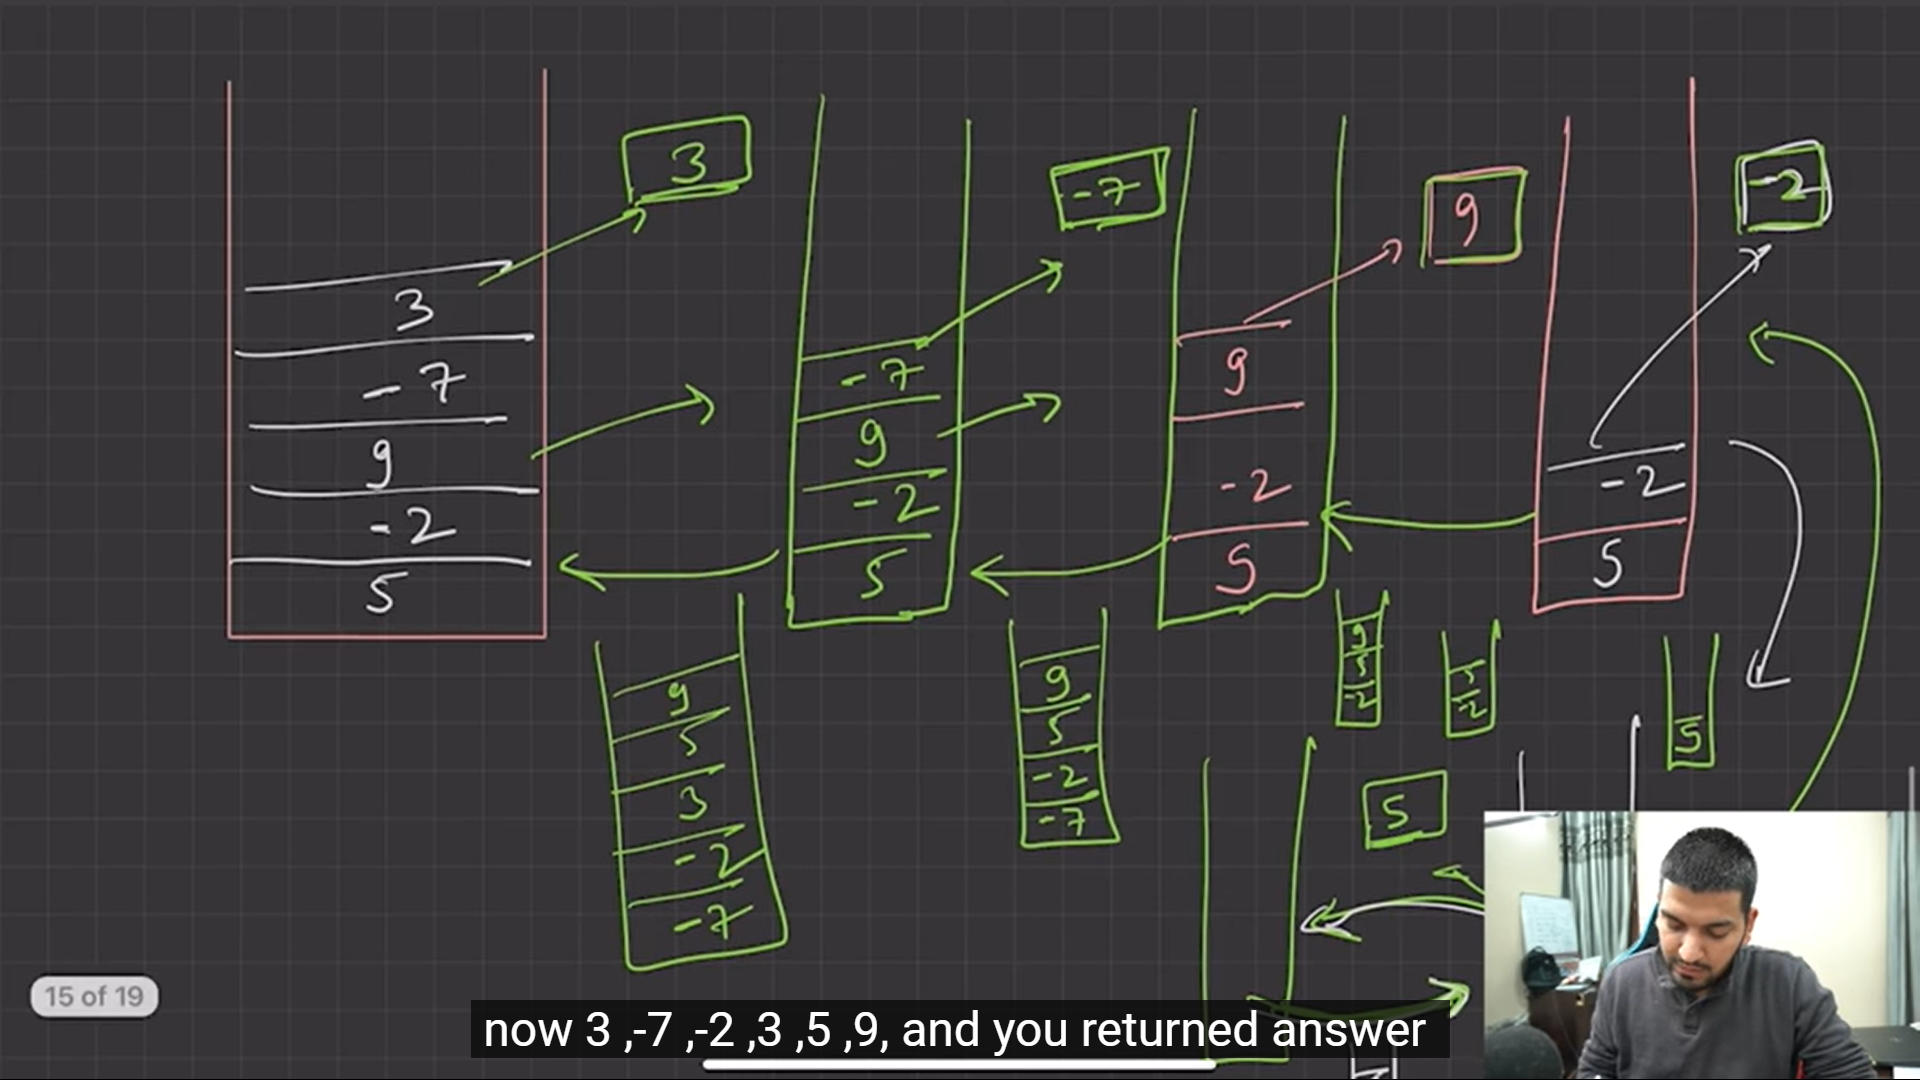 3
-7
9
-2
5
3
-7
9
-2
5
-7
9
-2
5
9
-2
5
-2
9
5
3
-2
-7
9
5
-2
-7
9
5
-2
5
-2
5
5
15 of 19
now 3 ,-7 ,-2 ,3 ,5 ,9, and you returned answer